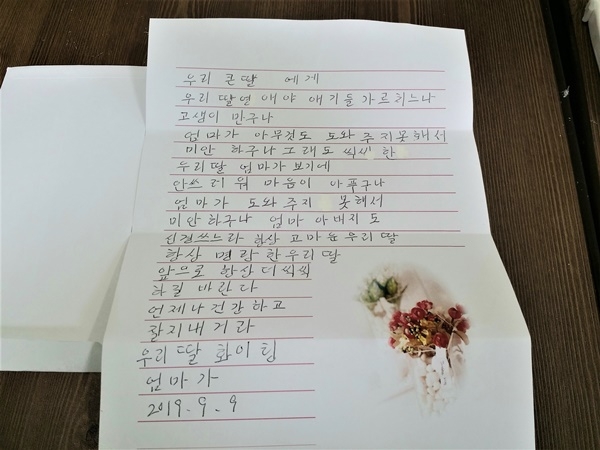 우리 큰딸 에게
우리 딸연 애야 애기들가르치느나
고생이 만구나
엄마가 아무것도 도와주지못해서
미안 하구나 그래도 씩씩한
우리딸 엄마가보기에
안쓰러워 마음이 아푸구나
엄마가 도와주지 못해서
미안하구나 엄마 아버지도
신경쓰느라 항상 고마운우리딸
항상 명랑한우리딸
앞으로 항산더씩씩
하길 바란다
언제나건강하고
잘지내거라
우리 딸 화이팅
엄마가
2019. 9. 9